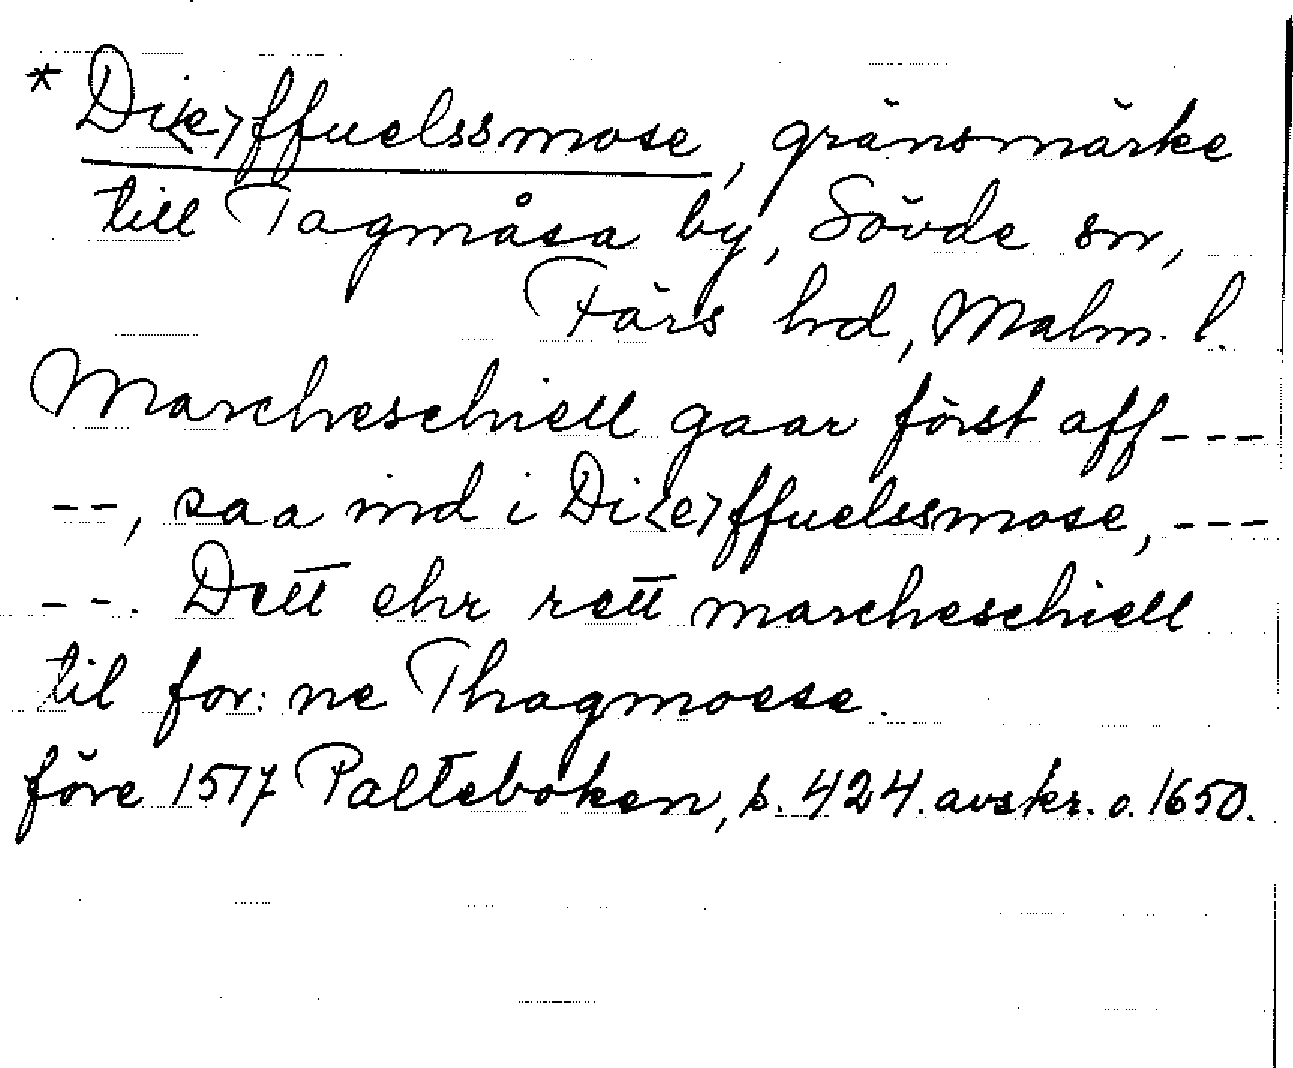 * Di<e>ffuelssmose, gränsmärke
till Tagmåsa by, Sövde sn,
Färs hd, Malm. l.
Marcheschiell gaar först aff ---
--, saa ind i Di<e>ffuelssmose, ---
--. Dett ehr rett marcheschiell
til for: ne Thagmosse.
före 1517 Palteboken, s. 424. avskr. o. 1650.